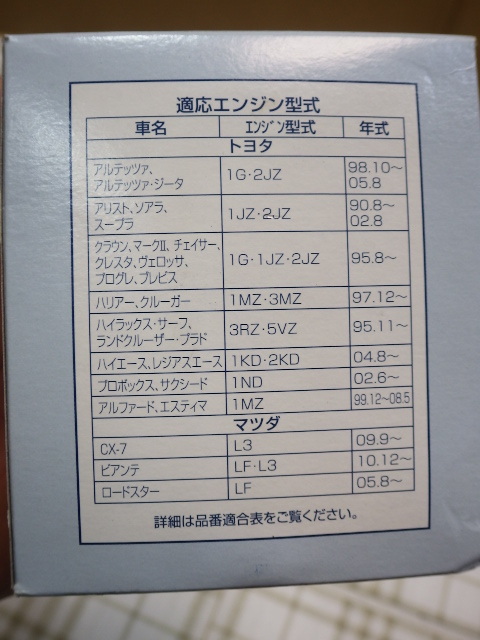 適応エンジン型式
車名 エンジン型式 年式
トヨタ
アルテッツァ、
アルテッツァ・ジータ 1G・2JZ 98.10〜
05.8
アリスト、ソアラ、
スープラ 1JZ・2JZ 90.8〜
02.8
クラウン、マークII、チェイサー、
クレスタ、ヴェロッサ、
プログレ、ブレビス 1G・1JZ・2JZ 95.8〜
ハリアー、クルーガー 1MZ・3MZ 97.12〜
ハイラックス・サーフ、
ランドクルーザー・プラド 3RZ・5VZ 95.11〜
ハイエース、レジアスエース 1KD・2KD 04.8〜
プロボックス、サクシード 1ND 02.6〜
アルファード、エスティマ 1MZ 99.12〜08.5
マツダ
CX-7 L3 09.9〜
ビアンテ LF・L3 10.12〜
ロードスター LF 05.8〜
詳細は品番適合表をご覧ください。